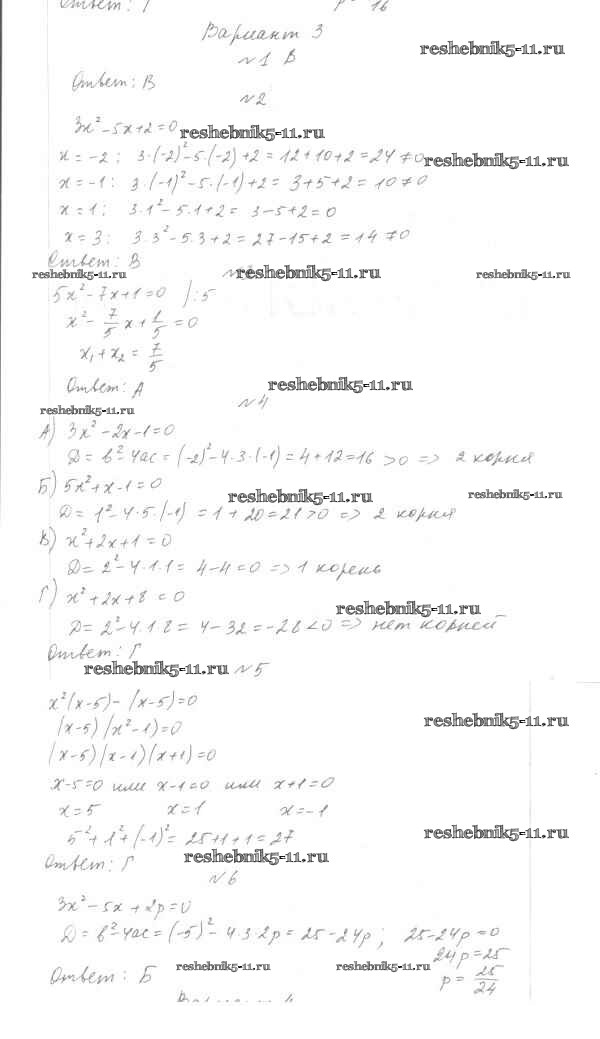 Ответ: Г р= 16
Вариант 3
reshebnik5-11.ru
№1 В
Ответ: В
№2
3x²-5x+2=0 reshebnik5-11.ru
x=-2; 3·(-2)²-5·(-2)+2=12+10+2=24≠0 reshebnik5-11.ru
x=-1: 3·(-1)²-5·(-1)+2=3+5+2=10≠0
x=1: 3·1²-5·1+2=3-5+2=0
x=3: 3·3²-5·3+2=27-15+2=14≠0
Ответ: В
reshebnik5-11.ru reshebnik5-11.ru reshebnik5-11.ru
5x²-7x+1=0 /:5
x²-7/5x+1/5=0
x₁+x₂=7/5
Ответ: А reshebnik5-11.ru
reshebnik5-11.ru №4
А) 3x²-2x-1=0
D=b²-4ac=(-2)²-4·3·(-1)=4+12=16>0=> 2 корня
Б) 5x²+x-1=0 reshebnik5-11.ru reshebnik5-11.ru
D=1²-4·5·(-1)=1+20=21>0=> 2 корня
В) x²+2x+1=0
D=2²-4·1·1=4-4=0=>1 корень
Г) x²+2x+8=0 reshebnik5-11.ru
D=2²-4·1·8=4-32=-28<0=>нет корней
Ответ: Г
reshebnik5-11.ru №5
x²(x-5)-(x-5)=0
reshebnik5-11.ru
(x-5)(x²-1)=0
(x-5)(x-1)(x+1)=0
x-5=0 или x-1=0 или x+1=0
x=5 x=1 x=-1
5²+1²+(-1)²=25+1+1=27 reshebnik5-11.ru
Ответ: Г reshebnik5-11.ru
№6
3x²-5x+2p=0
D=b²-4ac=(-5)²-4·3·2p=25-24p; 25-24p=0
24p=25
Ответ: Б reshebnik5-11.ru reshebnik5-11.ru p=25/24